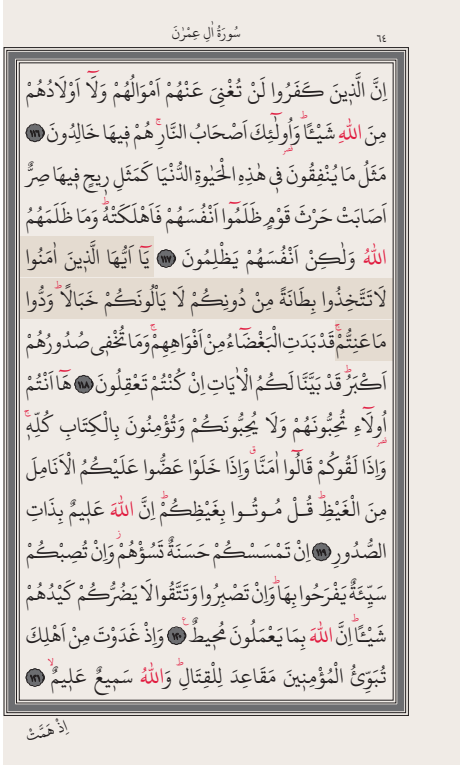 سُورَةُ اٰلِ عِمْرٰنَ
٦٤
اِنَّ الَّذ۪ينَ كَفَرُوا لَنْ تُغْنِيَ عَنْهُمْ اَمْوَالُهُمْ وَلَٓا اَوْلَادُهُمْ
مِنَ اللّٰهِ شَيْـًٔاۜ وَاُو۬لٰٓئِكَ اَصْحَابُ النَّارِۚ هُمْ ف۪يهَا خَالِدُونَ ﴿١١٦﴾
مَثَلُ مَا يُنْفِقُونَ ف۪ي هٰذِهِ الْحَيٰوةِ الدُّنْيَا كَمَثَلِ ر۪يحٍ ف۪يهَا صِرٌّ
اَصَابَتْ حَرْثَ قَوْمٍ ظَلَمُٓوا اَنْفُسَهُمْ فَاَهْلَكَتْهُۜ وَمَا ظَلَمَهُمُ
اللّٰهُ وَلٰكِنْ اَنْفُسَهُمْ يَظْلِمُونَ ﴿١١٧﴾ يَٓا اَيُّهَا الَّذ۪ينَ اٰمَنُوا
لَا تَتَّخِذُوا بِطَانَةً مِنْ دُونِكُمْ لَا يَأْلُونَكُمْ خَبَالًاۜ وَدُّوا
مَا عَنِتُّمْۚ قَدْ بَدَتِ الْبَغْضَٓاءُ مِنْ اَفْوَاهِهِمْۚ وَمَا تُخْف۪ي صُدُورُهُمْ
اَكْبَرُۜ قَدْ بَيَّنَّا لَكُمُ الْاٰيَاتِ اِنْ كُنْتُمْ تَعْقِلُونَ ﴿١١٨﴾ هَٓا اَنْتُمْ
اُو۬لَٓاءِ تُحِبُّونَهُمْ وَلَا يُحِبُّونَكُمْ وَتُؤْمِنُونَ بِالْكِتَابِ كُلِّه۪ۚ
وَاِذَا لَقُوكُمْ قَالُٓوا اٰمَنَّاۗ وَاِذَا خَلَوْا عَضُّوا عَلَيْكُمُ الْاَنَامِلَ
مِنَ الْغَيْظِۜ قُلْ مُوتُوا بِغَيْظِكُمْۜ اِنَّ اللّٰهَ عَل۪يمٌ بِذَاتِ
الصُّدُورِ ﴿١١٩﴾ اِنْ تَمْسَسْكُمْ حَسَنَةٌ تَسُؤْهُمْۘ وَاِنْ تُصِبْكُمْ
سَيِّئَةٌ يَفْرَحُوا بِهَاۜ وَاِنْ تَصْبِرُوا وَتَتَّقُوا لَا يَضُرُّكُمْ كَيْدُهُمْ
شَيْـًٔاۜ اِنَّ اللّٰهَ بِمَا يَعْمَلُونَ مُح۪يطٌ۟ ﴿١٢٠﴾ وَاِذْ غَدَوْتَ مِنْ اَهْلِكَ
تُبَوِّئُ الْمُؤْمِن۪ينَ مَقَاعِدَ لِلْقِتَالِۜ وَاللّٰهُ سَم۪يعٌ عَل۪يمٌۙ ﴿١٢١﴾
اِذْ هَمَّتْ